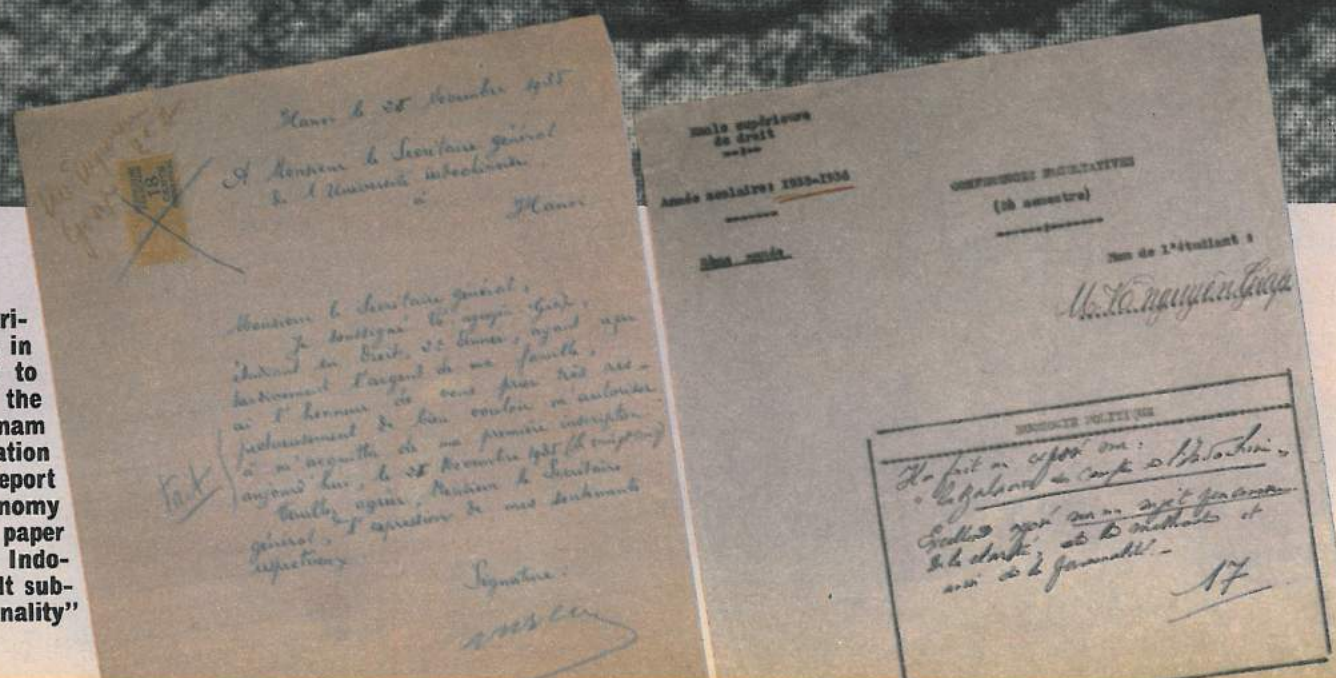 ri-
in
to
the
nam
ation
eport
nomy
paper
Indo-
lt sub-
nality"
Hanoi le 25 Novembre 1935
A Monsieur le Secrétaire général
de l'Université indochinoise
à
Hanoi
18
Monsieur le Secrétaire général,
Je soussigné Võ Nguyên Giáp,
étudiant en Droit, 2è Année, ayant reçu
tardivement l'argent de ma famille,
ai l'honneur de vous prier très res-
pectueusement de bien vouloir m'autoriser
à m'acquitter de ma première inscription
aujourd'hui, le 25 Novembre 1935
Fait
Veuillez agréer, Monsieur le Secrétaire
général, l'expression de mes sentiments
respectueux
Signature:
Ecole supérieure
de droit
Année scolaire: 1935-1936
2ème année.
CONFERENCES FACULTATIVES
(2è semestre)
Nom de l'étudiant :
M. Vo nguyen Giap
ECONOMIE POLITIQUE
A fait un exposé sur:
"la Balance des Comptes de l'Indochine"
Excellent exposé sur un sujet
de la clarté, de la méthode et
aussi de la personnalité -
17